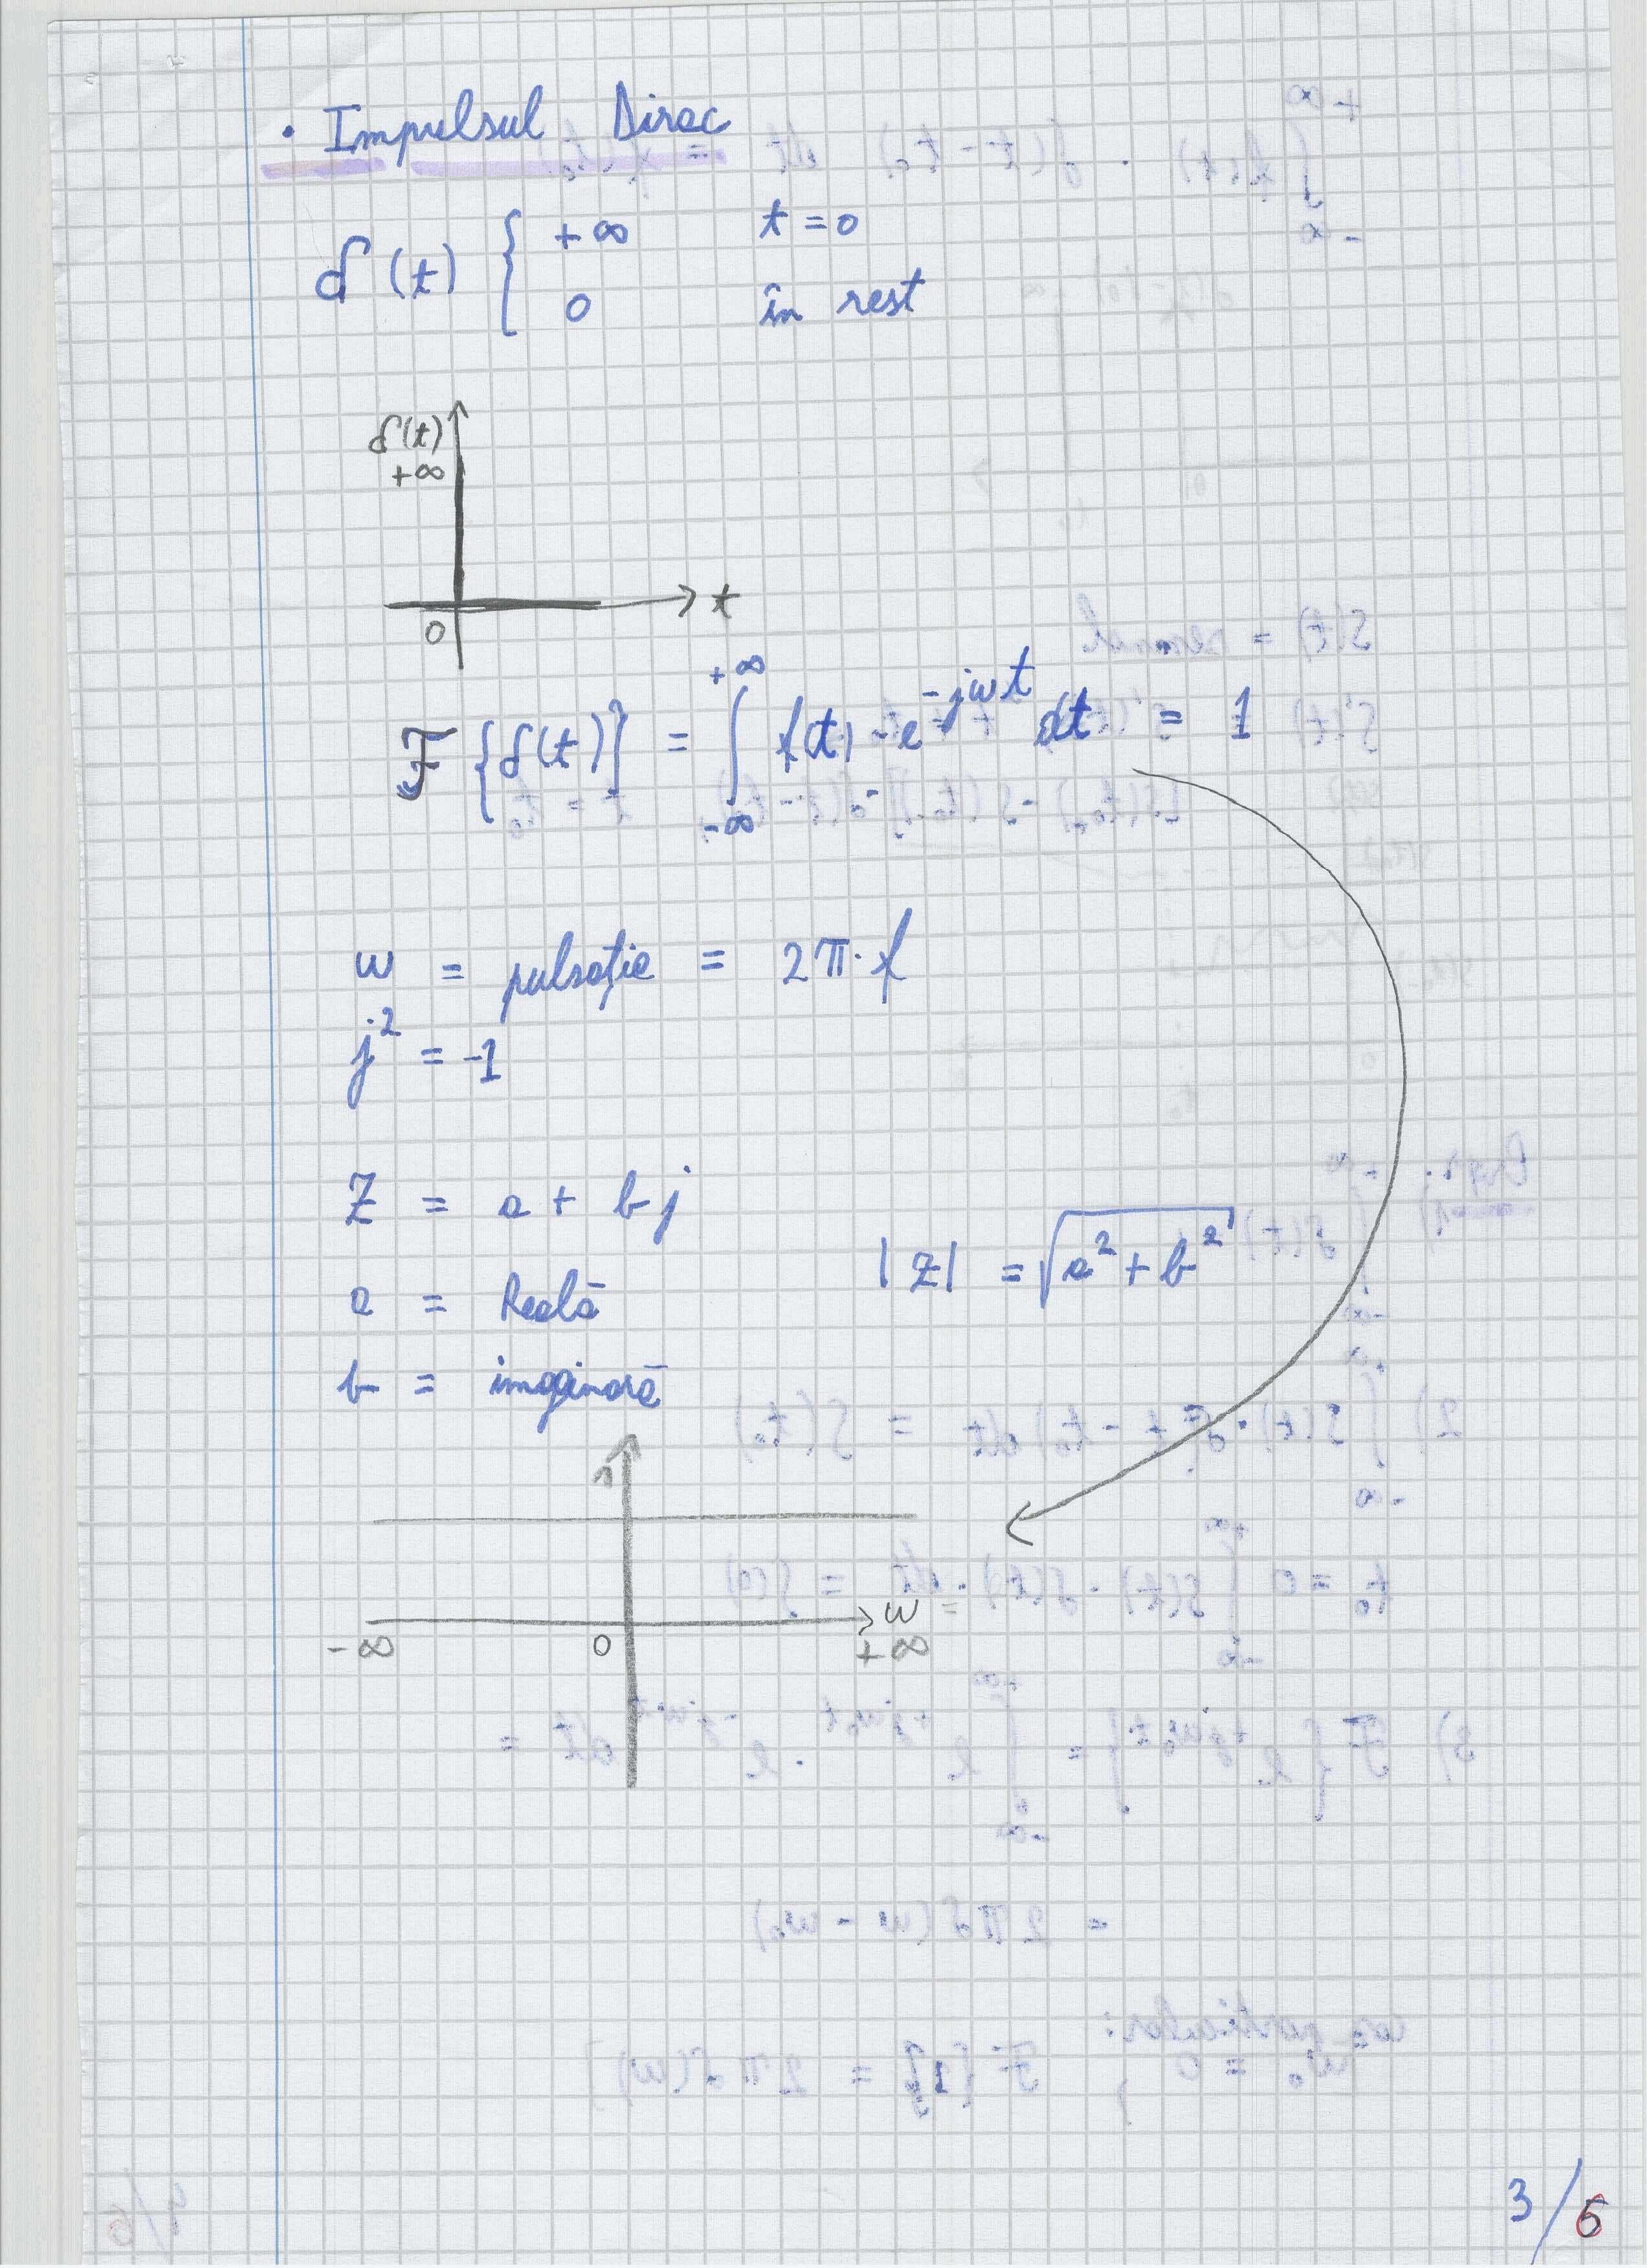 • Impulsul Dirac
δ(t) { +∞ t = 0
0 în rest
δ(t)
+∞
0 t
+∞
F {δ(t)} = ∫ f(t) · e^-jωt dt = 1
-∞
ω = pulsație = 2π · f
j² = -1
Z = a + bj
|Z| = √a² + b²
a = Reală
b = imaginară
1
ω
-∞ 0 +∞
3/6